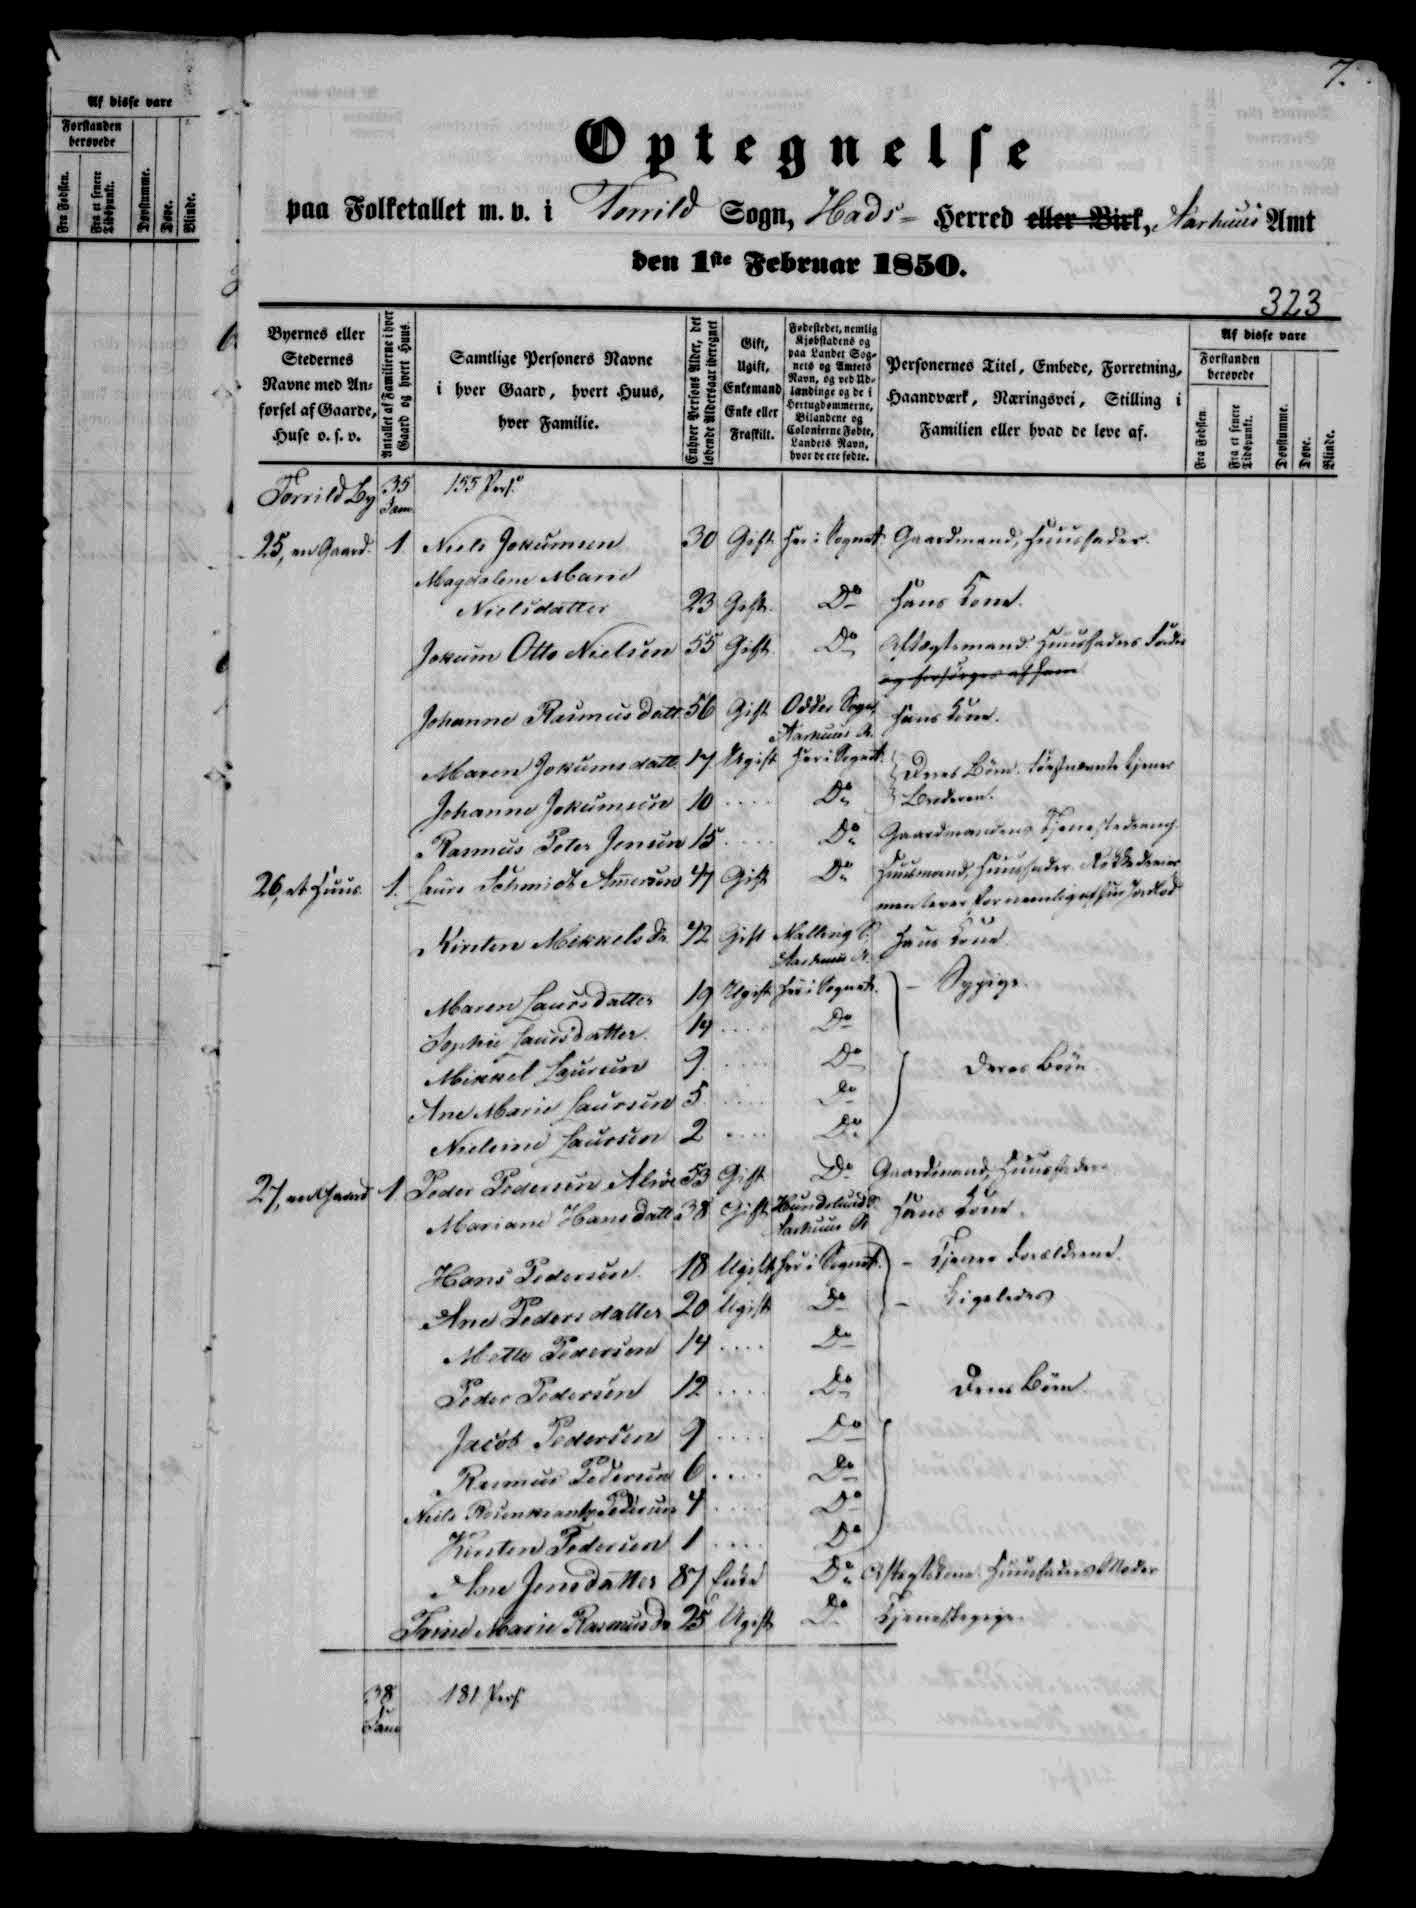 7.
Af disse vare
Forstanden berøvede
Fra Fødslen.
Fra et senere Tidspunkt.
Døvstumme.
Døve.
Blinde.
Optegnelse
paa Folketallet m. v. i Torrild Sogn, Hads- Herred eller Birk, Aarhuus Amt
den 1ste Februar 1850.
323
Byernes eller Stedernes Navne med Anførsel af Gaarde, Huse o. s. v.
Antallet af Familierne i hver Gaard og hvert Huus.
Samtlige Personers Navne i hver Gaard, hvert Huus, hver Familie.
Enhver Persons Alder, det løbende Aldersaar iberegnet
Gift, Ugift, Enkemand, Enke eller Fraskilt.
Fødestedet, nemlig Kjøbstadens og paa Landet Sognets og Amtets Navn, og ved Udlændinge og de i Hertugdømmerne, Bilandene og Colonierne Fødte, Landets Navn, hvor de ere fødte.
Personernes Titel, Embede, Forretning, Haandværk, Næringsvei, Stilling i Familien eller hvad de leve af.
Af disse vare
Forstanden berøvede
Fra Fødslen.
Fra et senere Tidspunkt.
Døvstumme.
Døve.
Blinde.
Torrild By 35 Fam 155 Pers.
25, en Gaard. 1. Niels Jokumsen 30 Gift her i Sognet Gaardmand, Huusfader.
Magdalene Marie
Nielsdatter 23 Gift. Do hans Kone.
Jokum Otto Nielsen 55 Gift Do Aftægtsmand. Huusfaders Fader
og forsørges af ham
Johanne Rasmusdatt. 56 Gift Odder Sogn, Aarhuus A. hans Kone.
Maren Jokumsdatt. 17 Ugift her i Sognet. Deres Børn. førstnævnte tjener
Johanne Jokumsen 10 .... Do Broderen.
Rasmus Peter Jensen 15 .... Do Gaardmandens Tjenestedreng.
26, et Huus 1. Laurs Schmidt Amersen 47 Gift Do Huusmand, Huusfader. Rokkedreier
men lever fornemlig af sin Jordlod
Kirsten Mikkelsdr. 42 Gift Malling S. Aarhuus A. hans Kone
Maren Laursdatter 19 Ugift her i Sognet. - Sypige.
Sophie Laursdatter. 14 .... Do
Mikkel Laursen 9. .... Do Deres Børn.
Ane Marie Laursen 5. .... Do
Nielsine Laursen 2 .... Do
27, en Gaard 1. Peder Pedersen Alrøe 53 Gift Do Gaardmand, Huusfader.
Mariane Hansdatt. 38 Gift Hundslund S. Aarhuus A. hans Kone.
Hans Pedersen. 18 Ugift her i Sognet. - Tjener Forældrene.
Ane Pedersdatter 20 Ugift Do - Ligeledes
Mette Pedersen 14 .... Do
Peder Pedersen 12 .... Do Deres Børn.
Jacob Pedersen 9 .... Do
Rasmus Pedersen 6 .... Do
Niels Rosenkrantz Pedersen 4 .... Do
Kirsten Pedersen 1 .... Do
Ane Jensdatter 87 Enke Do Aftægtskone. Huusfaders Moder
Trine Marie Rasmusdr. 25 Ugift Do Tjenestepige.
38 Fam 181 Pers.